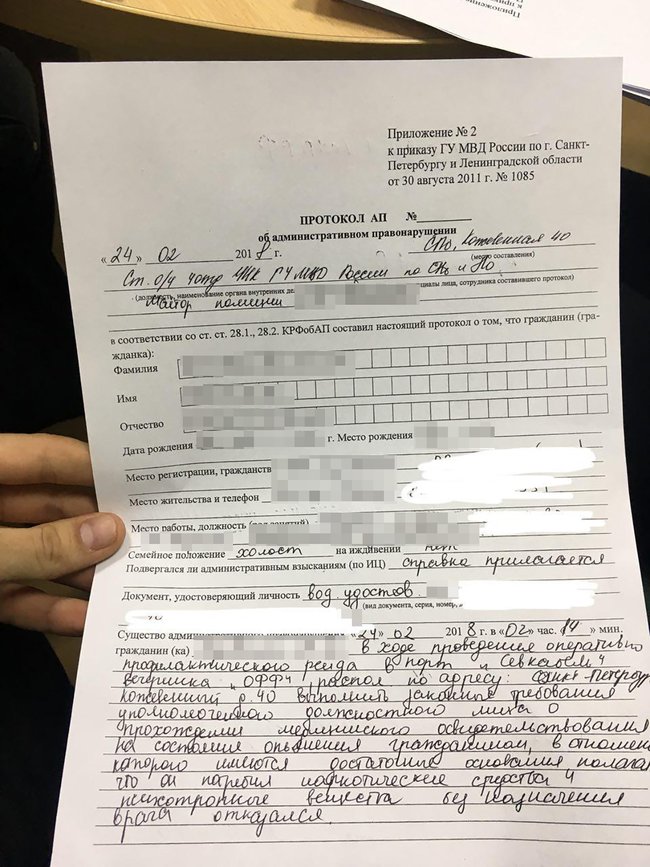 Приложение
к приказу
Приложение № 2
к приказу ГУ МВД России по г. Санкт-
Петербургу и Ленинградской области
от 30 августа 2011 г. № 1085
ПРОТОКОЛ АП №
об административном правонарушении
«24» 02 2018 г. СПб, Кожевенная 40
(место составления)
Ст. о/у ГУ МВД России по СПб и ЛО
(должность, наименование органа внутренних дел, инициалы лица, сотрудника составившего протокол)
Майор полиции
в соответствии со ст. ст. 28.1., 28.2. КРФобАП составил настоящий протокол о том, что гражданин (гра-
жданка):
Фамилия
Имя
Отчество
Дата рождения г. Место рождения
Место регистрации, гражданств
Место жительства и телефон
Место работы, должность
Семейное положение холост на иждивении нет
Подвергался ли административным взысканиям (по ИЦ) справка прилагается
Документ, удостоверяющий личность вод. удостов.
(вид документа, серия, номер,
Существо «24» 02 2018 г. в «02» час. 14 мин.
гражданин (ка) в ходе проведения оперативно
профилактического рейда в порт и Севкабель
вечеринка „ОФФ" распол по адресу: Санкт-Петербу
Кожевенный д. 40 выполнить законные требования
уполномоченного должностного лица о
прохождении медицинского освидетельствования
на состояние опьянения гражданином, в отношен
которого имеются достаточные основания полага
что он потребил наркотические средства и
психотропные вещества без назначения
врача отказался.